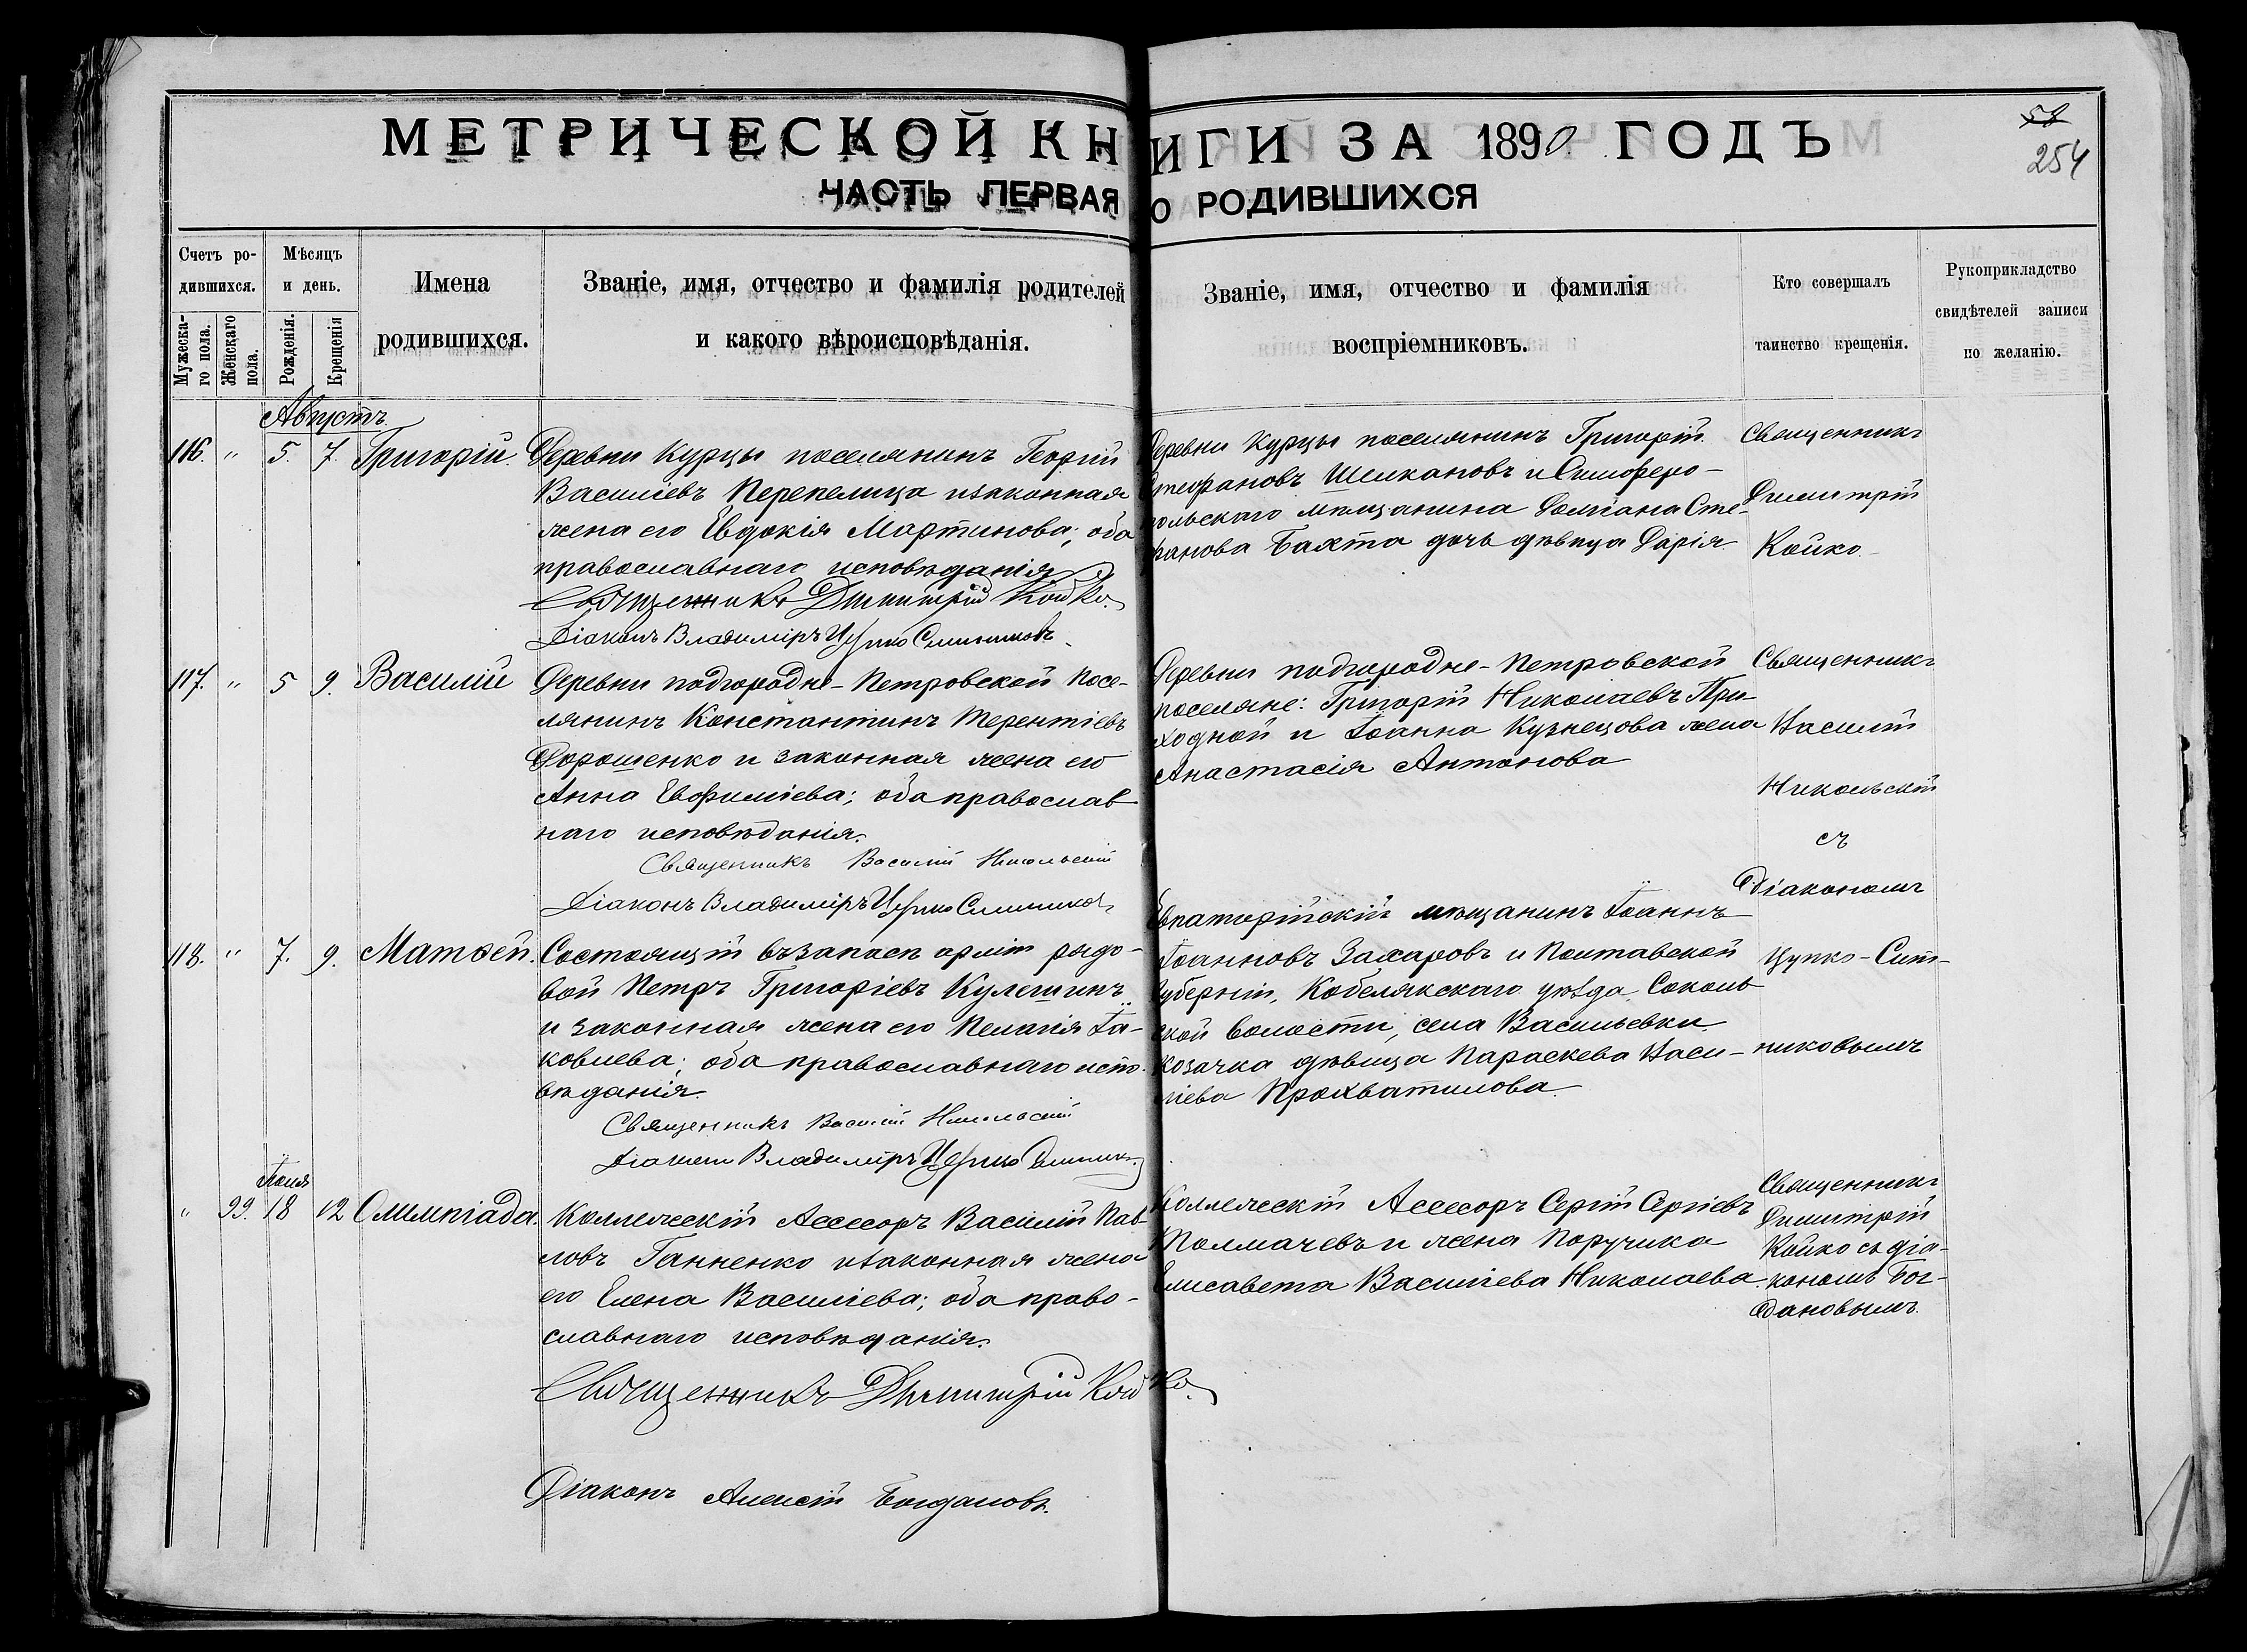 МЕТРИЧЕСКОЙ КНИГИ ЗА 1890 ГОДЪ
58
254
ЧАСТЬ ПЕРВАЯ О РОДИВШИХСЯ
Счетъ ро-
дившихся.
Мужеска-
го пола.
Женскаго
пола.
Мѣсяцъ
и день.
Рожденія.
Крещенія
Имена
родившихся.
Званіе, имя, отчество и фамилія родителей
и какого вѣроисповѣданія.
Званіе, имя, отчество и фамилія
воспріемниковъ.
Кто совершалъ
таинство крещенія.
Рукоприкладство
свидѣтелей записи
по желанію.
Августъ.
116. " 5. 7. Григорій.
Деревни Курцы поселянинъ Георгій
Василіевъ Перепелица и законная
жена его Евдокія Мартинова; оба
православнаго исповѣданія
Священникъ Димитрій Койко.
Діаконъ Владиміръ
Деревни Курцы поселянинъ Григорій
Стефановъ Шелкановъ и Симферо-
польскаго мѣщанина Даміана Сте-
фанова Бахта дочь дѣвица Дарія.
Священникъ
Димитрій
Койко.
117. " 5 9. Василій
Деревни подгородне-Петровской посе-
лянинъ Константинъ Терентіевъ
Дорошенко и законная жена его
Анна Евфиміева; оба православ
наго исповѣданія.
Священникъ Василій Никольскій
Діаконъ Владиміръ
Деревни подгородне-Петровской
поселяне: Григорій Николаевъ При-
ходной и Іоанна Кузнецова жена
Анастасія Антонова
Священникъ
Василій
Никольскій
съ
Діакономъ
Цупко-Сит-
никовымъ
118. " 7. 9. Матѳей.
Состоящій въ запасѣ арміи рядо-
вой Петръ Григоріевъ Кулешинъ
и законная жена его Пелагія Іа-
ковлева; оба православнаго испо-
вѣданія.
Священникъ Василій Никольскій
Діаконъ Владиміръ
Евпаторійскій мѣщанинъ Іоаннъ
Іоанновъ Захаровъ и Полтавской
губерніи, Кобелякскаго уѣзда, Соколь
ской волости, села Васильевки
козачка дѣвица Параскева Васи-
ліева Прохватилова.
Іюля
" 99. 18 12 Олимпіада.
Коллежскій Ассесоръ Василій Пав
ловъ Ганненко и законная жена
его Елена Василіева; оба право-
славнаго исповѣданія.
Священникъ Димитрій Койко.
Діаконъ Алексій Богдановъ.
Коллежскій Асессоръ Сергій Сергіевъ
Толмачевъ и жена Поручика
Елисавета Василіева Николаева.
Священникъ
Димитрій
Койко съ діа-
кономъ Бог-
дановымъ.